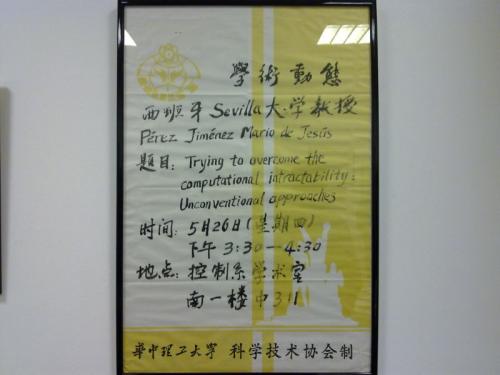 學術動態
西班牙 Sevilla 大学教授
Pérez Jiménez Mario de Jesús
题目: Trying to overcome the
computational intractability:
Unconventional approaches
时间: 5月26日(星期四)
下午 3:30—4:30
地点: 控制系学术室
南一楼中311
華中理工大学 科学技术协会制